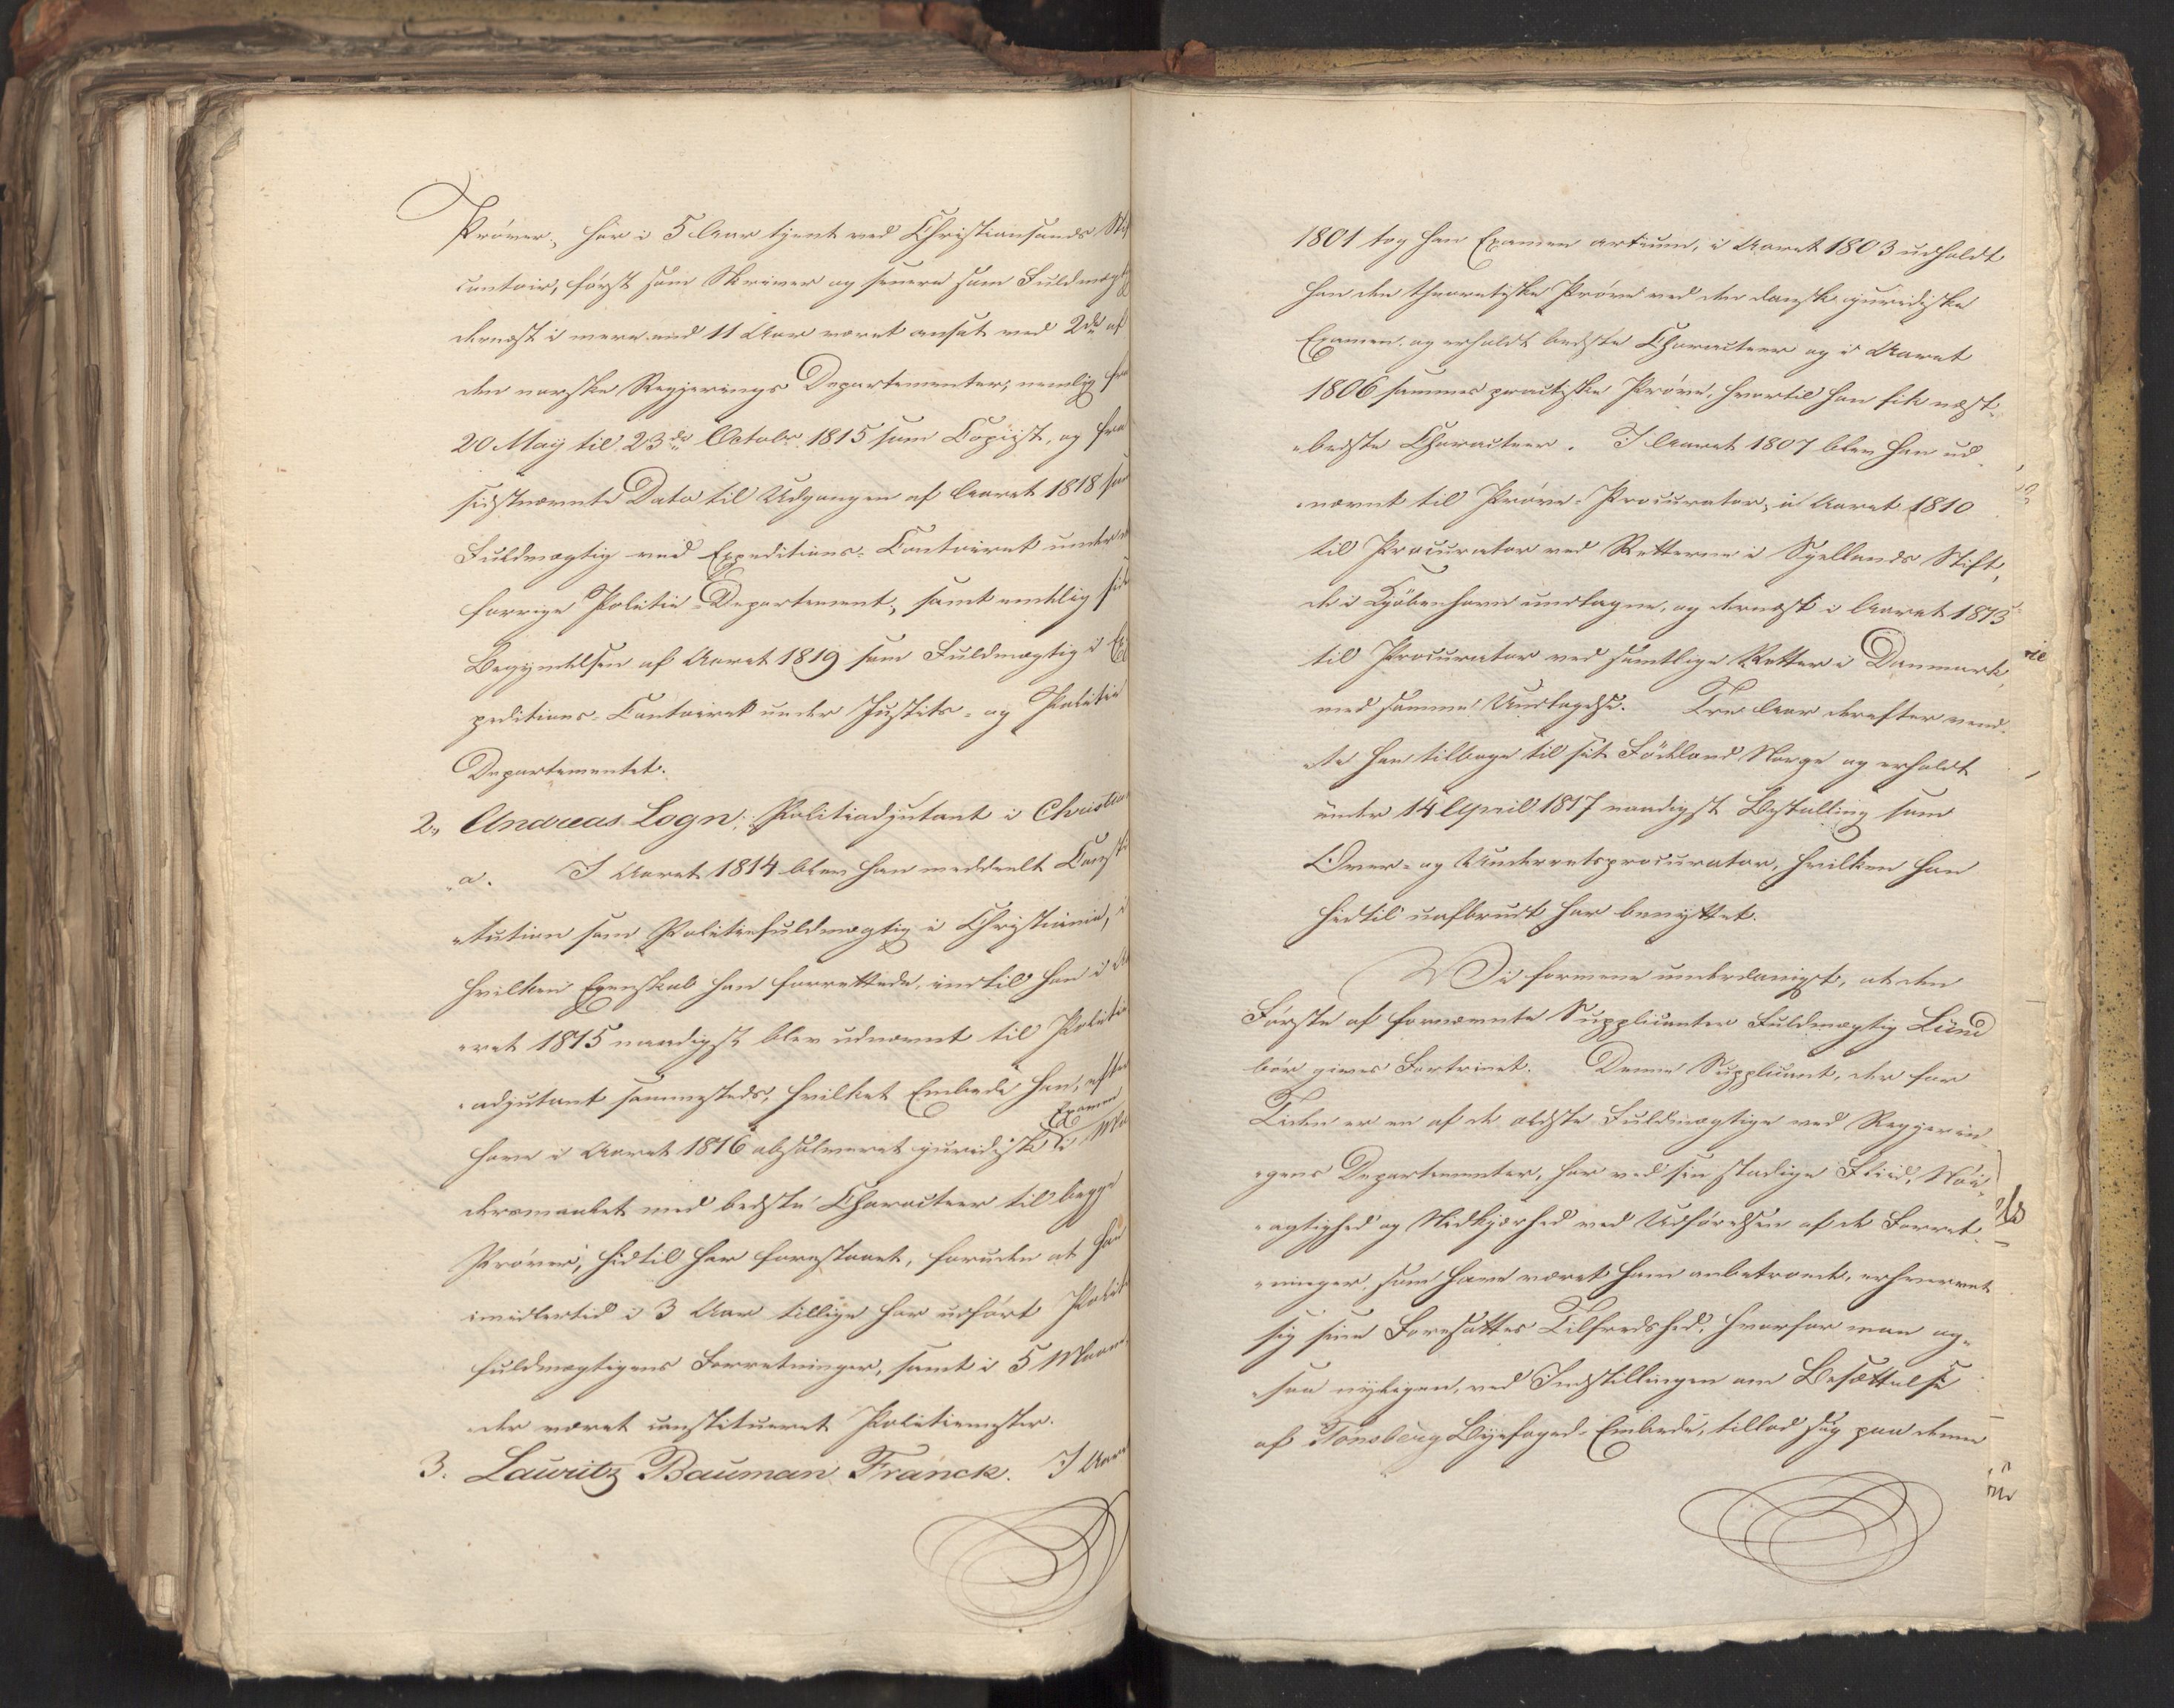 Prøver, har i 5 Aar tjent ved Christiansands Stif
contoir, først som Skriver og senere som Fuldmægt
dernæst i mere end 11 Aar været ansat ved 2de af
den norske Regjerings Departementer, nemlig fra
20 Maij til 23de Octobr. 1815 som Copiist, og fra
sidstnævnte Dato til Udgangen af Aaret 1818 som
Fuldmægtig ved Expeditions-Contoiret under
forrige Politie-Departement, samt endelig siden
Begyndelsen af Aaret 1819 som Fuldmægtig i Ex
peditions-Contoiret under Justits- og Politie
Departementet.
2, Andreas Logn, Politiadjutant i Christia
"a. I Aaret 1814 blev han meddeelt Consti
"tution som Politiefuldmægtig i Christiania, i
hvilken Egenskab han forrettede, indtil han i Aa
"ret 1815 naadigst blev udnævnt til Politie
"adjutant sammesteds, hvilket Embede han, efter
have i Aaret 1816 absolveret juridisk Examen i Mo
dersmaalet med bedste Characteer til begge
Prøver, hidtil har forestaaet, foruden at han
imidlertid i 3 Aar tillige har udført Politi
fuldmægtigens Forretninger, samt i 5 Maane
der været constitueret Politiemester.
3. Lauritz Bauman Franck. I Aare
1801 tog han Examen artium, i Aaret 1803 udholdt
han den theoretiske Prøve ved den dansk juridiske
Examen, og erholdt bedste Characteer og i Aaret
1806 sammes practiske Prøve, hvortil han fik næst-
"bedste Characteer. I Aaret 1807 blev han ud-
"nævnt til Prøve-Procurator, i Aaret 1810
til Procurator ved Retterne i Sjellands Stift,
de i Kjøbenhavn undtagne, og dernæst i Aaret 1813
til Procurator ved samtlige Retter i Danmark,
med samme Undtagelse. Tre Aar derefter vend-
"te han tilbage til sit Födeland Norge og erholdt
under 14 April 1817 naadigst Bestalling som
Over- og Underretsprocurator, hvilken han
hidtil uafbrudt har benyttet.
Vi formene underdanigst, at den
Første af fornævnte Supplicanter Fuldmægtig Lund
bør gives Fortrinet. Denne Supplicant, der for
Tiden er en af de ældste Fuldmægtige ved Regjerin-
"gens Departementer, har ved sin stadige Fliid, Nöi-
"agtighed og Nidkjærhed ved Udførelsen af de Forret-
"ninger, som have været ham anbetroede, erhvervet
sig sine Foresattes Tilfredshed, hvorfor man og-
"saa nyligen, ved Indstillingen om Besættelse
af Tönsberg Byefoged-Embede, tillod sig paa denne